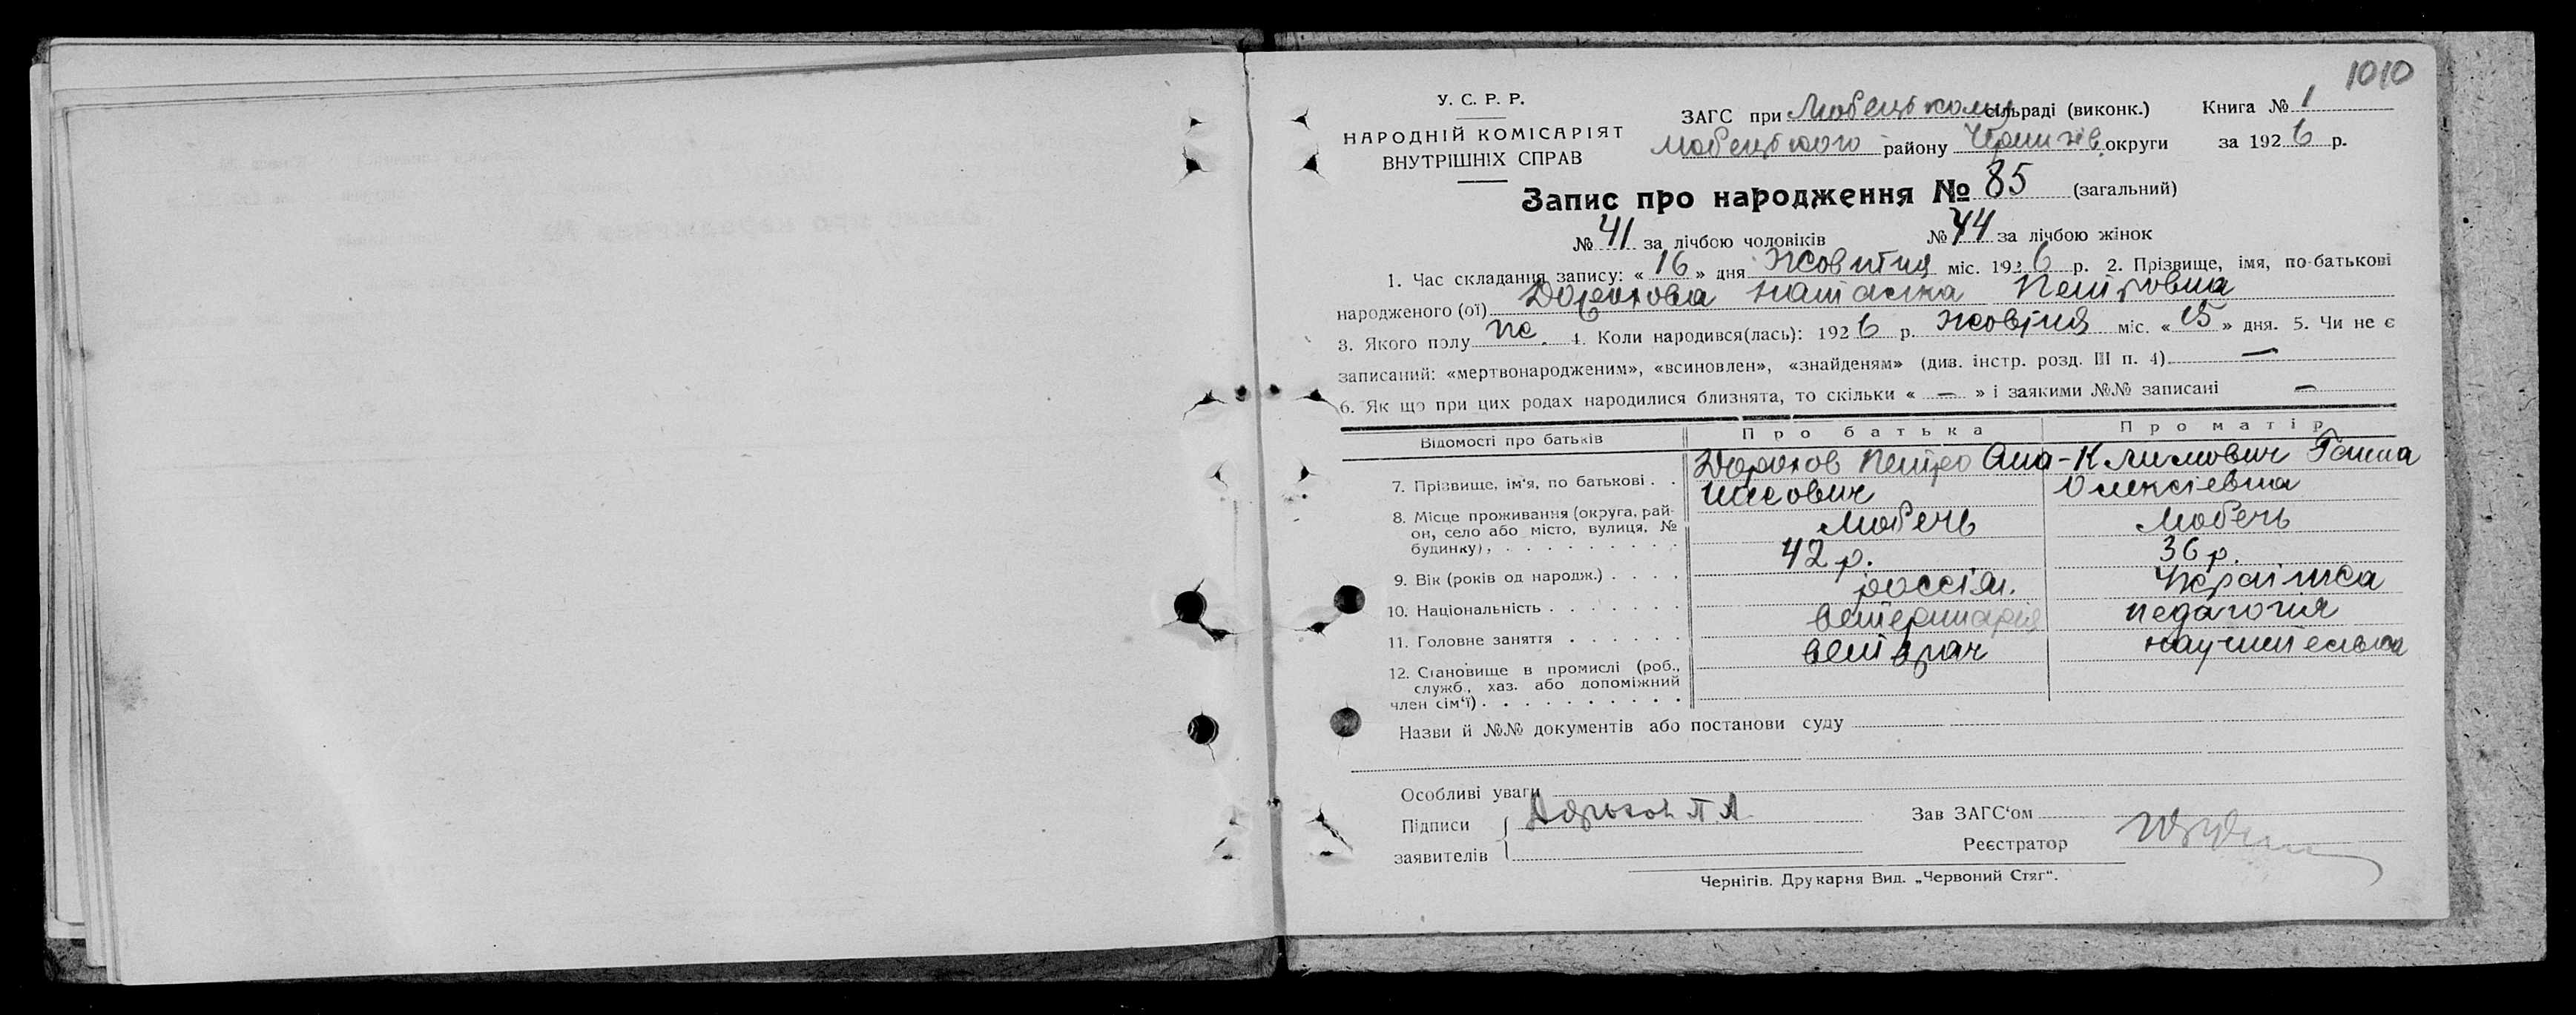 1010
У. С. Р. Р.
НАРОДНІЙ КОМІСАРІЯТ
ВНУТРІШНІХ СПРАВ
ЗАГС при Любецькому сільраді (виконк.) Книга № 1
Любецького району Черників. округи за 1926 р.
Запис про народження № 85 (загальний)
№ 41 за лічбою чоловіків № 44 за лічбою жінок
1. Час складання запису: « 16 » дня Жовтня міс. 1926 р. 2. Прізвище, імя, по-батькові
народженого (ої) Дорохова Наташа Петровна
3. Якого полу ж. 4. Коли народився(лась): 1926 р. Жовтня міс. « 15 » дня. 5. Чи не є
записаний: «мертвонародженим», «всиновлен», «знайденям» (див. інстр. розд. III п. 4) —
6. Як що при цих родах народилися близнята, то скільки « — » і заякими №№ записані —
Відомості про батьків Про батька Про матір
7. Прізвище, ім'я, по батькові . . Дорохов Петро Апа- Климович Ганна
насович Олексіевна
8. Місце проживання (округа, рай-
он, село або місто, вулиця, №
будинку), . . . . . . . . . . Любечь Любечь
9. Вік (років од народж.) . . . . 42 р. 36 р.
10. Національність . . . . . . . россіян. Украінка
11. Головне заняття . . . . . . ветеринарія педагогія
12. Становище в промислі (роб.,
служб., хаз. або допоміжний
член сім'ї) . . . . . . . . . . ветврач
Назви й №№ документів або постанови суду
Особливі уваги
Підписи Дорохов П А
заявителів
Зав ЗАГС'ом
Реєстратор
Чернігів. Друкарня Вид. „Червоний Стяг“.